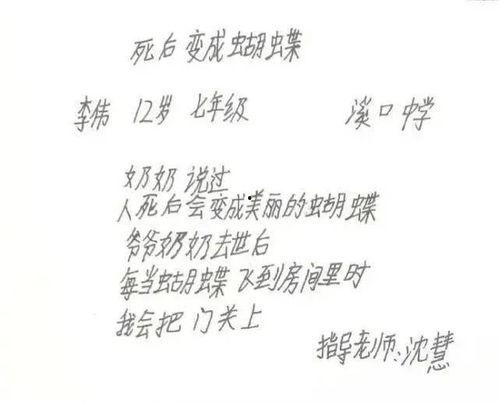 死后变成蝴蝶
李伟 12岁 七年级 溪口中学
奶奶说过
人死后会变成美丽的蝴蝶
爷爷奶奶去世后
每当蝴蝶飞到房间里时
我会把门关上
指导老师:沈慧